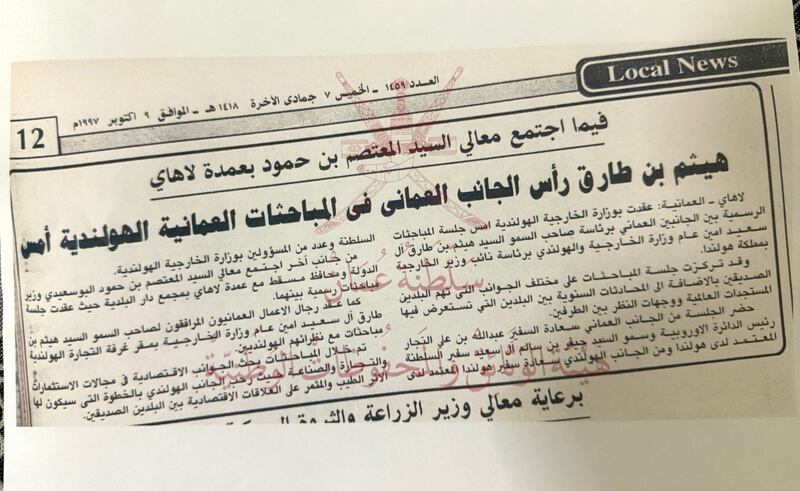 Local News
العدد ١٤٥٩ ـ الخميس ٧ جمادى الآخرة ١٤١٨ هـ ـ الموافق ٩ أكتوبر ١٩٩٧م
12
فيما اجتمع معالي السيد المعتصم بن حمود بعمدة لاهاي
هيثم بن طارق رأس الجانب العماني في المباحثات العمانية الهولندية أمس
لاهاي ـ العمانية: عقدت بوزارة الخارجية الهولندية امس جلسة المباحثات
الرسمية بين الجانبين العماني برئاسة صاحب السمو السيد هيثم بن طارق آل
سعيد امين عام وزارة الخارجية والهولندي برئاسة نائب وزير الخارجية
بمملكة هولندا.
وقد تركزت جلسة المباحثات على مختلف الجوانب التي تهم البلدين
الصديقين بالاضافة الى المحادثات السنوية بين البلدين التي تستعرض فيها
المستجدات العالمية ووجهات النظر بين الطرفين.
حضر الجلسة من الجانب العماني سعادة السفير عبدالله بن علي النجار
رئيس الدائرة الاوروبية وسمو السيد جيفر بن سالم آل سعيد سفير السلطنة
المعتمد لدى هولندا ومن الجانب الهولندي سعادة سفير هولندا المعتمد لدى
السلطنة وعدد من المسؤولين بوزارة الخارجية الهولندية.
من جانب آخر اجتمع معالي السيد المعتصم بن حمود البوسعيدي وزير
الدولة ومحافظ مسقط مع عمدة لاهاي بمجمع دار البلدية حيث عقدت جلسة
مباحثات رسمية بينهما.
كما عقد رجال الاعمال العمانيون المرافقون لصاحب السمو السيد هيثم بن
طارق آل سعيد امين عام وزارة الخارجية بمقر غرفة التجارة الهولندية
مباحثات مع نظرائهم الهولنديين
تم خلال المباحثات بحث الجوانب الاقتصادية في مجالات الاستثمارات
والتجارة والصناعة حيث رحب الجانب الهولندي بالخطوة التي سيكون لها
الاثر الطيب والمثمر على العلاقات الاقتصادية بين البلدين الصديقين.
سلطنة عمان
هيئة الوثائق والمحفوظات الوطنية
برعاية معالي وزير الزراعة والثروة